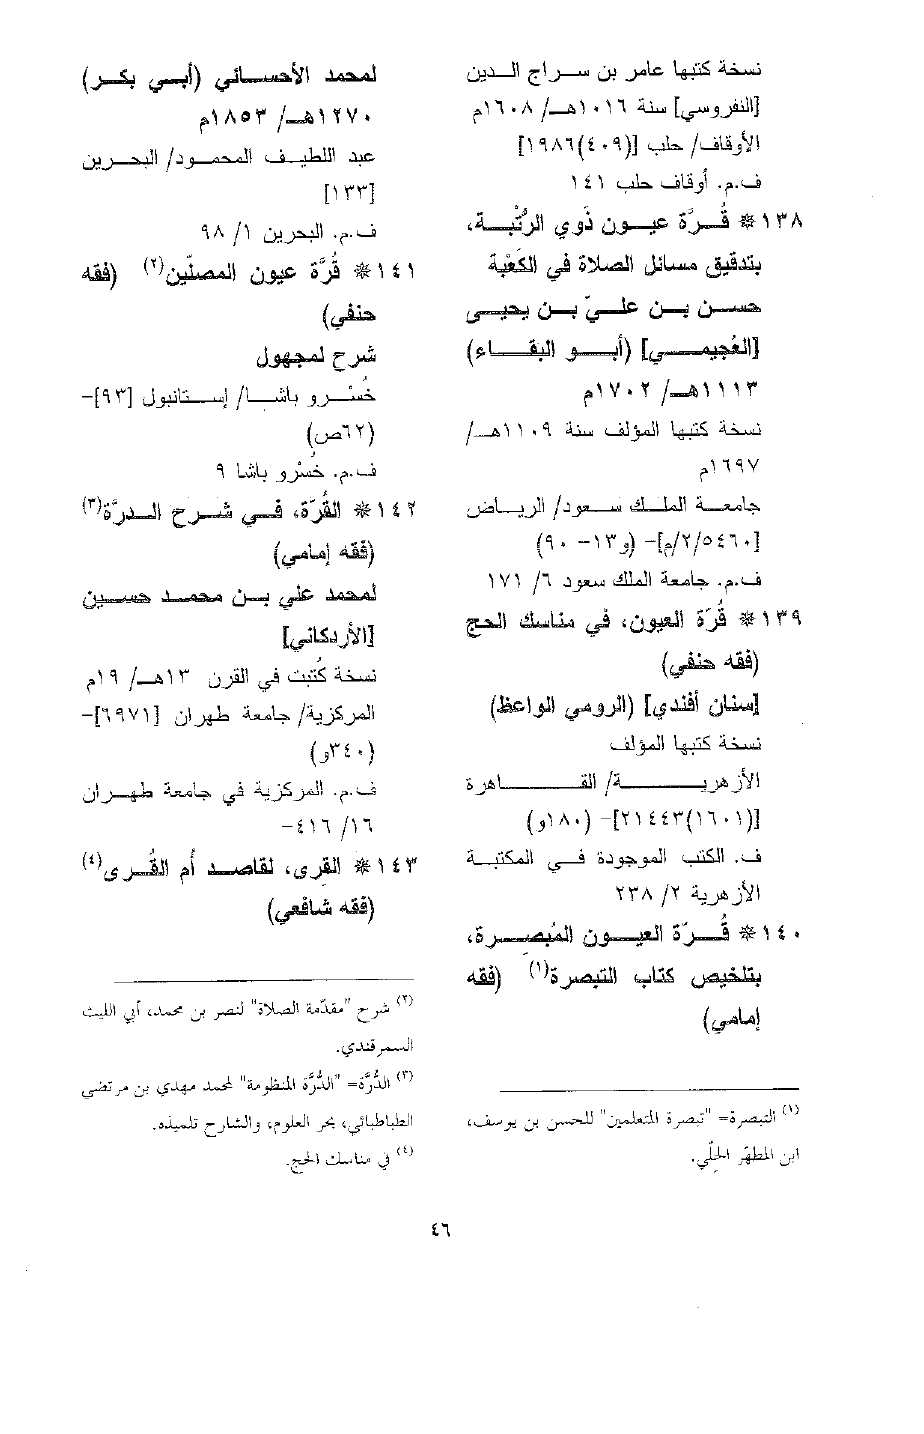 نسخة كتبها عامر بن سراج الدين
[النفروسي] سنة ١٠١٦هـ/ ١٦٠٨م
الأوقاف/ حلب [(٤٠٩)١٩٨٦]
ف.م. أوقاف حلب ١٤١
١٣٨* قُرَّة عيون ذَوي الرُّتْبة،
بتدقيق مسائل الصلاة في الكَعْبة
حسن بن عليّ بن يحيى
[العُجيمي] (أبو البقاء)
١١١٣هـ/ ١٧٠٢م
نسخة كتبها المؤلف سنة ١١٠٩هـ/
١٦٩٧م
جامعة الملك سعود/ الرياض
[٢/٥٤٦٠/م]- (و١٣- ٩٠)
ف.م. جامعة الملك سعود ٦/ ١٧١
١٣٩* قُرّة العيون، في مناسك الحج
(فقه حنفي)
[سنان أفندي] (الرومي الواعظ)
نسخة كتبها المؤلف
الأزهرية/ القاهرة
[(١٦٠١)٢١٤٤٣]- (١٨٠و)
ف. الكتب الموجودة في المكتبة
الأزهرية ٢/ ٢٣٨
١٤٠* قُرّة العيون المُبصِرة،
بتلخيص كتاب التبصرة(١) (فقه
إمامي)
(١) التبصرة= "تبصرة المتعلمين" للحسن بن يوسف،
ابن المطهّر الحِلّي.
لمحمد الأحسائي (أبي بكر)
١٢٧٠هـ/ ١٨٥٣م
عبد اللطيف المحمود/ البحرين
[١٣٣]
ف.م. البحرين ١/ ٩٨
١٤١* قُرَّة عيون المصلّين(٢) (فقه
حنفي)
شرح لمجهول
خُسْرو باشا/ إستانبول [٩٣]-
(٦٢ص)
ف.م. خُسْرو باشا ٩
١٤٢* القُرّة، في شرح الدرَّة(٣)
(فقه إمامي)
لمحمد علي بن محمد حسين
[الأردكاني]
نسخة كُتبت في القرن ١٣هـ/ ١٩م
المركزية/ جامعة طهران [٦٩٧١]-
(٣٤٠و)
ف.م. المركزية في جامعة طهران
١٦/ ٤١٦-
١٤٣* القِرى، لقاصد أُم القُرى(٤)
(فقه شافعي)
(٢) شرح "مقدّمة الصلاة" لنصر بن محمد، أبي الليث
السمرقندي.
(٣) الدُّرَّة= "الدُّرَّة المنظومة" لمحمد مهدي بن مرتضى
الطباطبائي، بحر العلوم، والشارح تلميذه.
(٤) في مناسك الحج.
٤٦